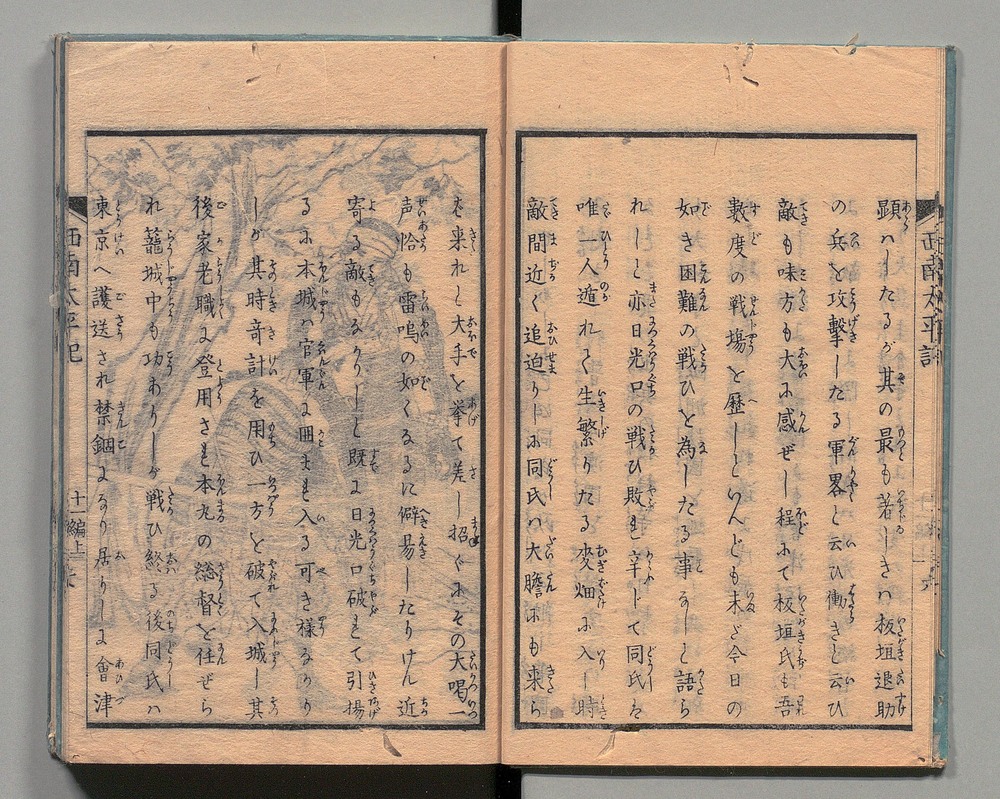 顕ハしたるが其の最も著しきハ板垣退助
の兵を攻撃したる軍畧と云ひ働きと云ひ
敵も味方も大に感ぜし程にて板垣氏も吾
数度の戦場を歴しといへども未だ今日の
如き困難の戦ひを為したる事なしと語ら
れしと亦日光口の戦ひ敗れ辛して同氏は
唯一人遁れて生繁りたる麥畑に入し時
敵間近く追迫りしに同氏ハ大膽にも来ら
ば来れと大手を挙て差し招くにその大喝一
声恰も雷鳴の如くなるに僻易したりけん近
寄る敵もなかりしと既に日光口破れて引揚
るに本城ハ官軍に囲まれ入る可き様なかり
しが其時竒計を用ひ一方を破て入城し其
後家老職に登用され本丸の総督を任ぜら
れ籠城中も功ありしが戦ひ終る後同氏ハ
東京へ護送され禁錮になり居りしに會津
西南太平記
十一編上
六